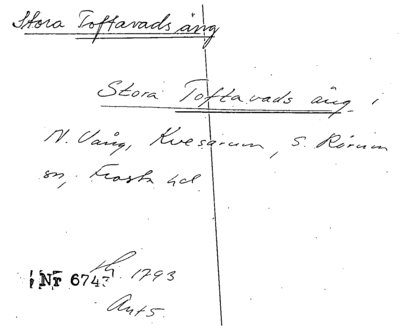 Stora Toftavads äng
Stora Toftavads äng i
N. Vång, Kvesarum, S. Rörum
sn, Frosta hd.
Nr 6747
1793
Ant 5.